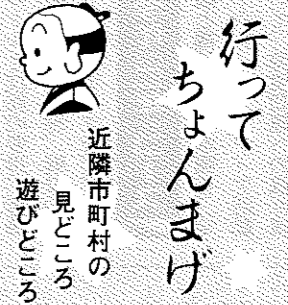 行って
ちょんまげ
近隣市町村の
見どころ
遊びどころ